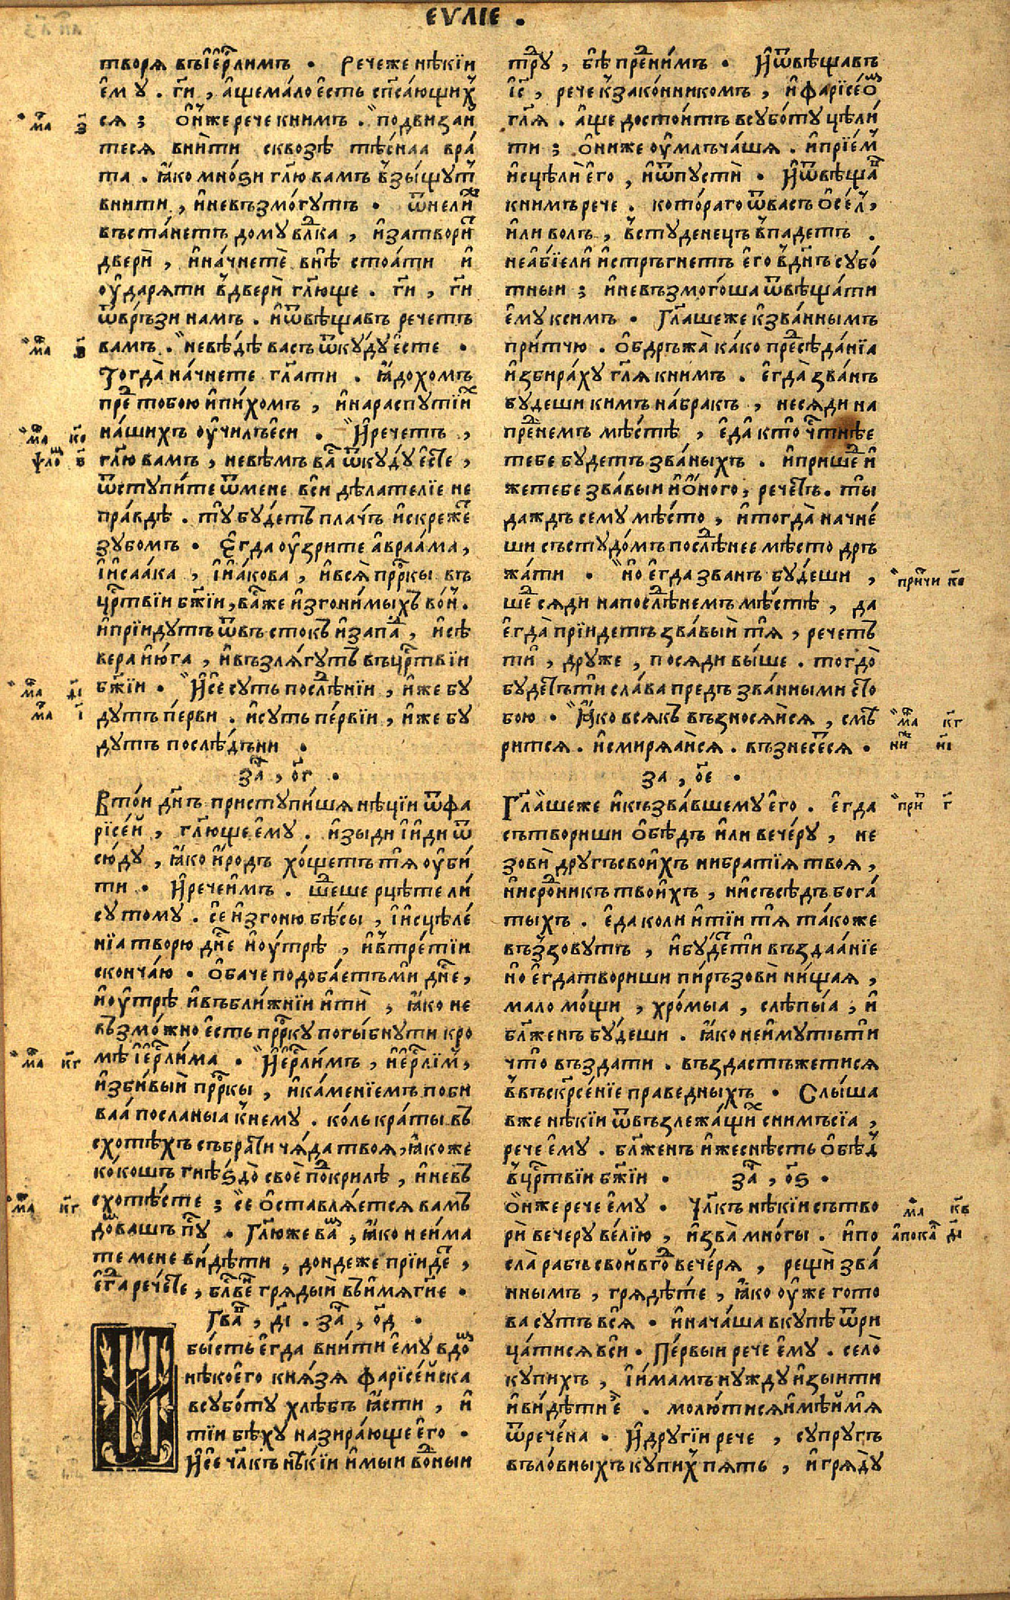 ЕѴЛІЕ .
творѧ въ і҆ерⷭ҇лимъ . Рече же нѣкїи
є҆мꙋ . гⷭ҇и , а҆ще мало єсть сп҃сающихⷭ
сѧ ; Ѻ҆н же рече к ним . подвизаи
тесѧ внити сквозѣ тѣснаа вра
та . ꙗ҆ко мноѕи гл҃ю вамъ в̾зыщꙋтⷭ
внити , и҆ невъзмогꙋтъ . ѿнелиⷤ
въстанетъ домꙋ вл҃ка , и҆ затвориⷮ
двери , и҆ начнете внѣ стоати и҆
ᲂу҆дарѧти в̾двери гл҃юще . гⷭ҇и , гⷭ҇и
ѿвръзи намъ . и҆ ѿвѣщавъ речетъ
вамъ . невѣдѣ васъ ѿкꙋдꙋ єсте .
Тогда начнете гл҃ати . ꙗ҆дохомъ
преⷣ тобою и҆ пихомъ , и҆ на распꙋтїиⷯ
нашихъ ᲂу҆чилъ еси . И҆ речетъ ,
гл҃ю вамъ , невѣмъ ваⷭ ѿкꙋдꙋ єсте ,
ѿстꙋпите ѿ мене вси дѣлателїе не
правдѣ . тꙋ бꙋдетъ плачь и҆ скрежеⷮ
зꙋбомъ . Єгда ᲂу҆зрите а҆враама ,
і҆ исаака , і҆ и҆акова , и҆ всѧ прⷪ҇ркы въ
црⷭ҇твїи бж҃їи , ваⷭ же и҆згонимыхъ во́нъ .
и҆ прїидꙋтъ ѿ въстокъ и҆ запаⷣ , и҆ сѣ
вера и҆ юга , и҆ възлѧгꙋтъ въ црⷭ҇твїи
бж҃їи . И҆ се сꙋть послѣⷣнїи , и҆же бꙋ
дꙋтъ перви . и҆ сꙋть первїи , и҆же бꙋ
дꙋтъ послѣдъни .
заⷱ , о҃г .
В той дн҃ь пристꙋпишѧ нѣцїи ѿ фа
рїсей , гл҃юще є҆мꙋ . и҆зыди і҆ иди ѿ
сюдꙋ , ꙗ҆ко и҆родъ хощетъ тѧ ᲂу҆би
ти . И҆ рече и҆мъ . шеⷣше рцѣте ли
сꙋ томꙋ . се и҆згоню бѣсы , і҆ исцѣле
нїа творю дн҃е и҆ ᲂу҆трѣ , и҆ в̾третїи
скончаю . Ѻ҆баче подобаетъ ми дн҃е ,
и҆ ᲂу҆трѣ и҆ въ ближнїи и҆ти , ꙗ҆ко не
възможно єсть прⷪ҇ркꙋ погыбнꙋти кро
мѣ і҆ерⷭ҇лима . И҆ерⷭ҇лимъ , и҆ерⷭ҇лимъ ,
и҆збивый прⷪ҇ркы , и҆ каменїемъ поби
ваа посланыа к̾немꙋ . коль краты въ
схотѣхъ събрати чѧда твоѧ , ꙗ҆коже
кокошъ гнѣѕдо свое поⷣ крилѣ , и҆ невъ
схотѣсте ; се ѡ҆ставлѧетсѧ вамъ
доⷨ вашъ пꙋⷭ . Гл҃ю же ваⷨ , ꙗ҆ко не и҆ма
те мене видѣти , дондеже прїидеⷮ ,
є҆гⷣа речете , блⷭ҇ве́нъ грѧдый въ имѧ гⷭ҇не .
Глаⷡ , д҃і . заⷱ , о҃д .
Бысть егда внити є҆мꙋ в доⷨ
нѣкоего кнѧзѧ фарїсейска
в сꙋботꙋ хлѣбъ ꙗ҆сти , и҆
тїи бѣхꙋ назирающе его .
И҆ се чл҃къ нѣкїи и҆мыи воⷣныи
трꙋⷣ , бѣ преⷣ ним . И҆ ѿвѣщавъ
і҆с҃ , рече к законникомъ , и҆ фарїсеоⷨ
гл҃ѧ . а҆ще достоитъ в сꙋботꙋ цѣли
ти ; ѻ҆ни же ᲂу҆млъчашѧ . и҆ прїемⷧ
и҆сцѣли его , и҆ ѿпꙋсти . И҆ ѿвѣщаⷡ
к нимъ рече . котораго ѿ васъ ѻ҆селъ ,
и҆ли волъ , в̾стꙋденець в̾падетъ .
не а҆бїе ли и҆стръгнетъ его в̾ дн҃ь сꙋбо
тныи ; и҆ не възмогоша ѿвѣщати
є҆мꙋ к симъ . Гл҃аше же к званнымъ
притчю . Ѻ҆бдръжа како преⷣсѣданїа
и҆збирахꙋ гл҃ѧ к нимъ . є҆гда званъ
бꙋдеши ким на бракъ , не сѧди на
преⷣнемъ мѣстѣ , єда кто чⷭ҇тнѣе
тебе бꙋдетъ званыхъ . и҆ пришеⷣ и҆
же тебе звавыи и҆ ѻ҆ного , речетъ . ты
даждь семꙋ мѣсто , и҆ тогда начне
ши съ стꙋдомъ послѣⷣнее мѣсто дръ
жати . Но єгда званъ бꙋдеши ,
шеⷣ сѧди на послѣⷣнемъ мѣстѣ , да
є҆гда прїидетъ звавый тѧ , речетъ
ти , дрꙋже , посѧди выше . тогдо
бꙋдетъ ти слава предъ званными сто
бою . Ꙗ҆ко всѧкъ възносѧйсѧ , смѣ
ритсѧ . и҆ смирѧайсѧ . възнесетсѧ .
за , о҃е .
Гл҃аше же и҆ къ звавшемꙋ его . є҆гда
сътвориши ѻ҆бѣдъ и҆ли вечерꙋ , не
зови дрꙋгъ своихъ ни братїѧ твоѧ ,
ни сроⷣникъ твоихъ , ни сꙋсѣдъ бога
тыхъ . єда коли и҆ тїи тѧ такоже
възⷣовꙋтъ , и҆ бꙋдетъ ти въздаанїе
но єгда твориши пиръ зови нищаѧ ,
маломощи , хромыа , слѣпыа , и҆
бл҃женъ бꙋдеши . ꙗ҆ко неимꙋтъ ти
что въздати . въздастъ же тисѧ
в̾въскрⷭ҇сенїе праведныхъ . Слыша
вже нѣкїи ѿ възлежащиⷯ с нимъ сїа ,
рече є҆мꙋ . бл҃женъ и҆же снѣсть ѻ҆бѣⷣ
в̾црⷭ҇твїи бж҃їи . заⷱ , о҃ѕ .
Ѻ҆н же рече є҆мꙋ . Чл҃къ нѣкїи сътво
ри вечерꙋ велїю , и҆ зва многы . и҆ по
сла рабъ свой въ гоⷣ вечерѧ , рещи зва
ннымъ , грѧдѣте , ꙗ҆ко ᲂу҆же гото
ва сꙋть всѧ . и҆ начаша вкꙋпѣ ѿри
цатисѧ вси . Первыи рече є҆мꙋ . село
кꙋпихъ , і҆ имамъ нꙋждꙋ и҆зыити
и҆ видѣти е҆ . молютисѧ и҆мѣй мѧ
ѿречена . И҆ дрꙋгїи рече , сꙋпрꙋгъ
въловныхъ кꙋпихⷭ пѧть , и҆ грѧдꙋ